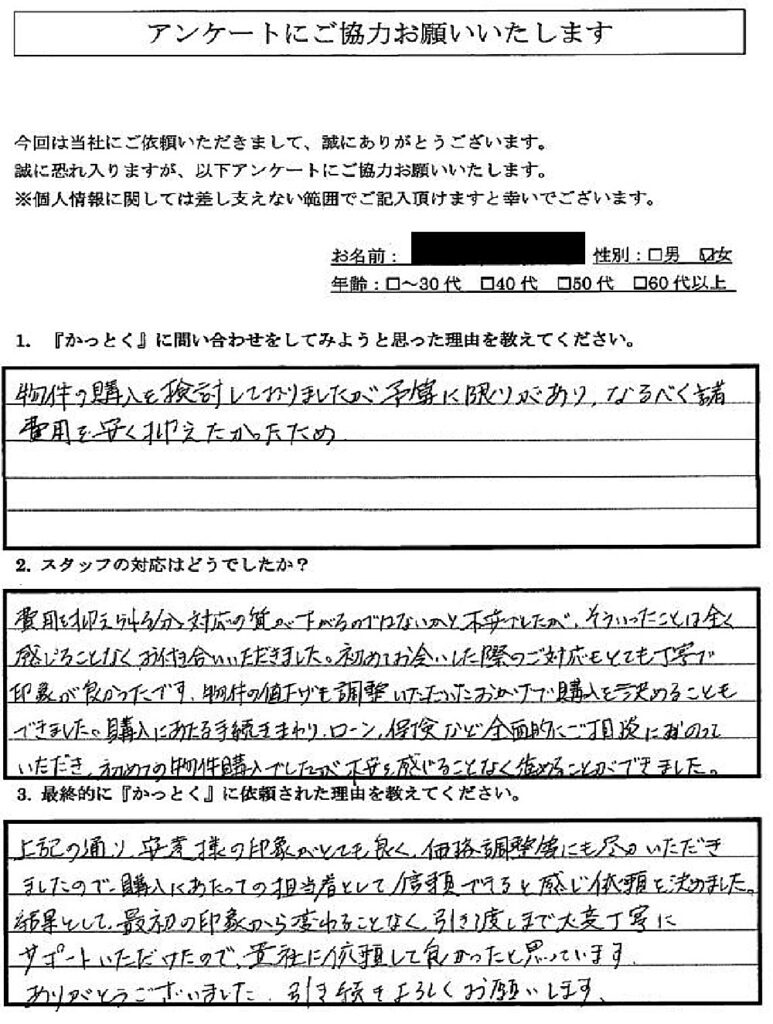 アンケートにご協力お願いいたします
今回は当社にご依頼いただきまして、誠にありがとうございます。
誠に恐れ入りますが、以下アンケートにご協力お願いいたします。
※個人情報に関しては差し支えない範囲でご記入頂けますと幸いでございます。
お名前： 性別：□男 ☑女
年齢：□～30代 □40代 □50代 □60代以上
1. 『かっとく』に問い合わせをしてみようと思った理由を教えてください。
物件の購入を検討しておりましたが予算に限りがあり、なるべく諸
費用を安く抑えたかったため
2. スタッフの対応はどうでしたか？
費用を抑えられる分、対応の質が下がるのではないかと不安でしたが、そういったことは全く
感じることなくお付き合いいただきました。初めてお会いした際のご対応もとても丁寧で
印象が良かったです。物件の値下げも調整いただいたおかげで購入を決めることも
できました。購入にあたる手続きまわり、ローン、保険など全面的にご相談におのって
いただき、初めての物件購入でしたが不安を感じることなく進めることができました。
3. 最終的に『かっとく』に依頼された理由を教えてください。
上記の通り、安達様の印象がとても良く、価格調整等にも尽力いただき
ましたので、購入にあたっての担当者として信頼できると感じ依頼を決めました。
結果として、最初の印象から変わることなく、引き渡しまで大変丁寧に
サポートいただけたので、貴社に依頼して良かったと思っています。
ありがとうございました。引き続きよろしくお願いします。